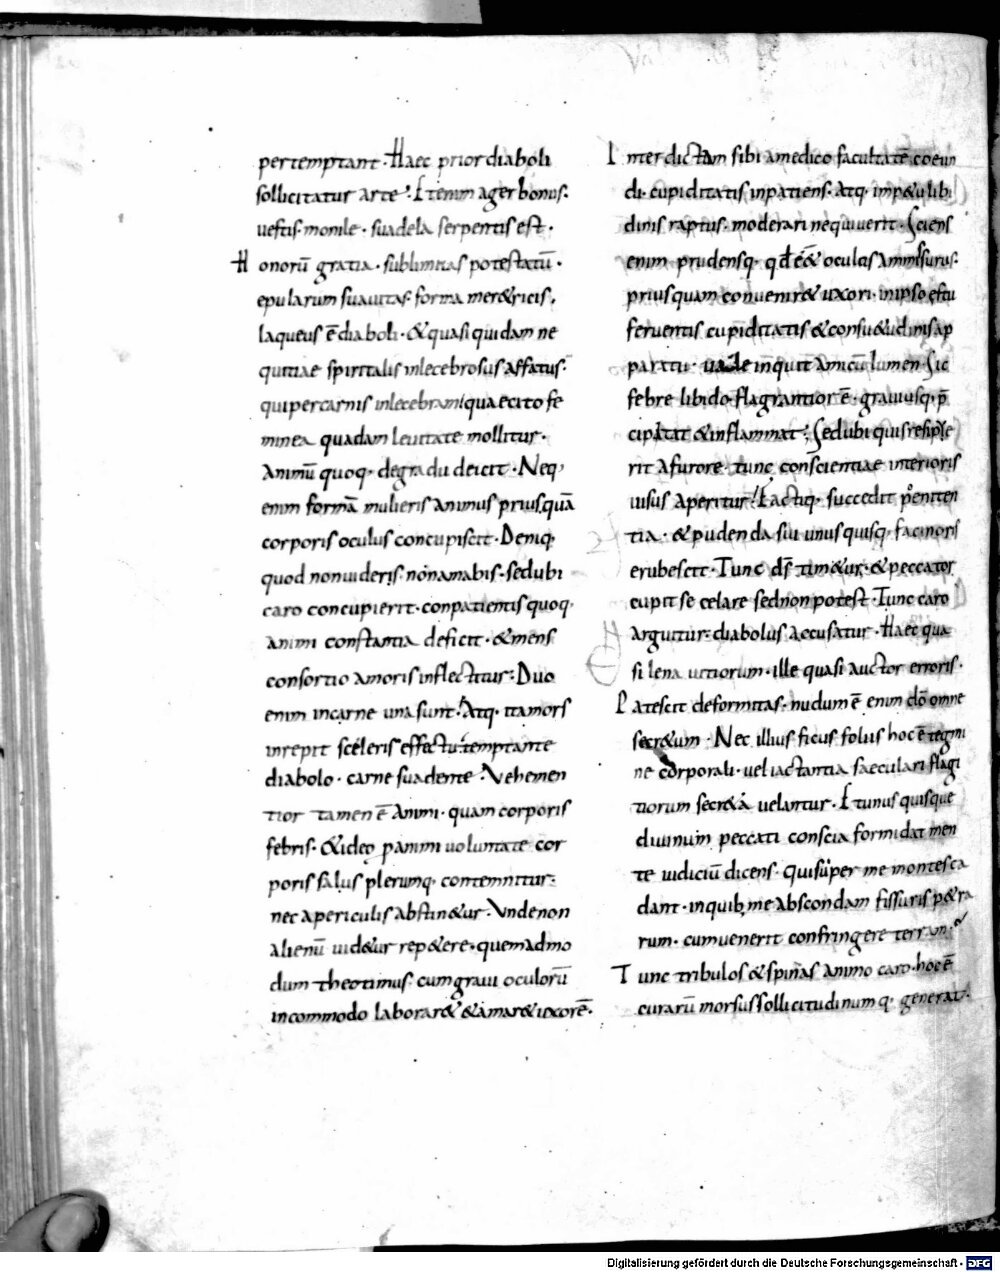 pertemptant · Haec prior diaboli
sollicitatur arte · Item ager bonus ·
uestis · monile · suadela serpentis est ·
Honorū gratia · sublimitas potestatū ·
epularum suauitas · forma mer&ricis ,
laqueus ē diaboli · & quasi quidam ne
quitiae spiritalis inlecebrosus affatus ·
qui per carnis inlecebram quae cito fe
minea quadam leuitate mollitur ·
Animū quoq· de gradu deicit · Neq·
enim formā mulieris animus priusquā
corporis oculus concupiscit · Deniq·
quod non uideris · non amabis · sed ubi
caro concupierit · conpatientis quoq·
animi constantia deficit · & mens
consortio amoris inflectitur : Duo
enim in carne una sunt · Atq· ita mors
inrepit sceleris effectu · temptante
diabolo · carne suadente · Vehemen
tior tamen ē animi · quam corporis
febris · & ideo p animi uoluntatē cor
poris salus plerumq· contemnitur :
nec a periculis abstin&ur · Vnde non
alienū uid&ur rep&ere · quemadmo
dum theotimus · cum graui oculorū
incommodo laborar& & amar& uxorē ·
Interdictam sibi a medico facultatē coeun
di · cupiditatis inpatiens · atq· imp&u libi
dinis raptus · moderari nequiuerit · Sciens
enim prudensq· qđ eē& oculos ammissurus ·
priusquam conuenir& uxori · in ipso estu
feruentis cupiditatis & consu&udinis ap
paratu · uale inquit amicū lumen · Sic
febre libido flagrantior ē · grauiusq· p̄
cipitat & inflammat : Sed ubi quis resipisce
rit a furore · tunc conscientiae interioris
uisus aperitur · Factiq· succedit peniten
tia · & pudenda sui unusquisq· facinoris
erubescit · Tunc ds̄ tim&ur · & peccator
cupit se celare sed non potest · Tunc caro
arguitur : diabolus accusatur · Haec qua
si lena uitiorum · ille quasi auctor erroris ·
Patescit deformitas · nudum ē enim dō omne
secr&um · Nec illius ficus folus hoc ē tegmi
ne corporali · uel iactantia saeculari flagi
tiorum secr&a uelantur · Et unus quisque
diuinum peccati conscia formidat men
te iudiciū dicens · qui super me montes ca
dant · in quib; me abscondam fissuris p&ra
rum · cum uenerit confringere terram ·
Tunc tribulos & spinas animo caro · hoc ē
curarū morsus sollicitudinumq· generat ·
Digitalisierung gefördert durch die Deutsche Forschungsgemeinschaft - DFG